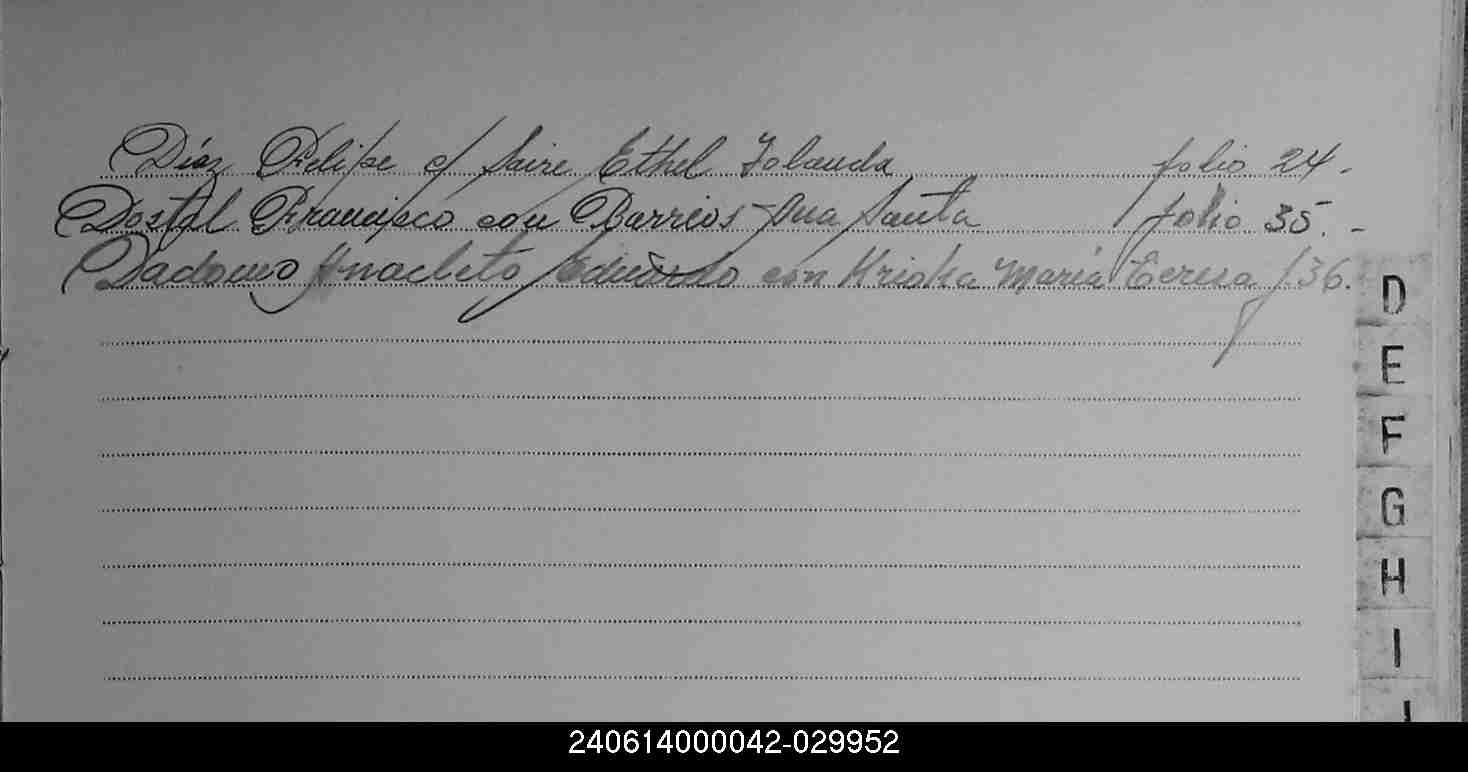 Díaz Felipe c/ Saire Ethel Iolanda folio 24.-
Dostal Francisco con Barrios Ana Santa folio 35.-
Dadomo Anacleto Eduardo con Kriska María Teresa f. 36.
D
E
F
G
H
I
240614000042-029952